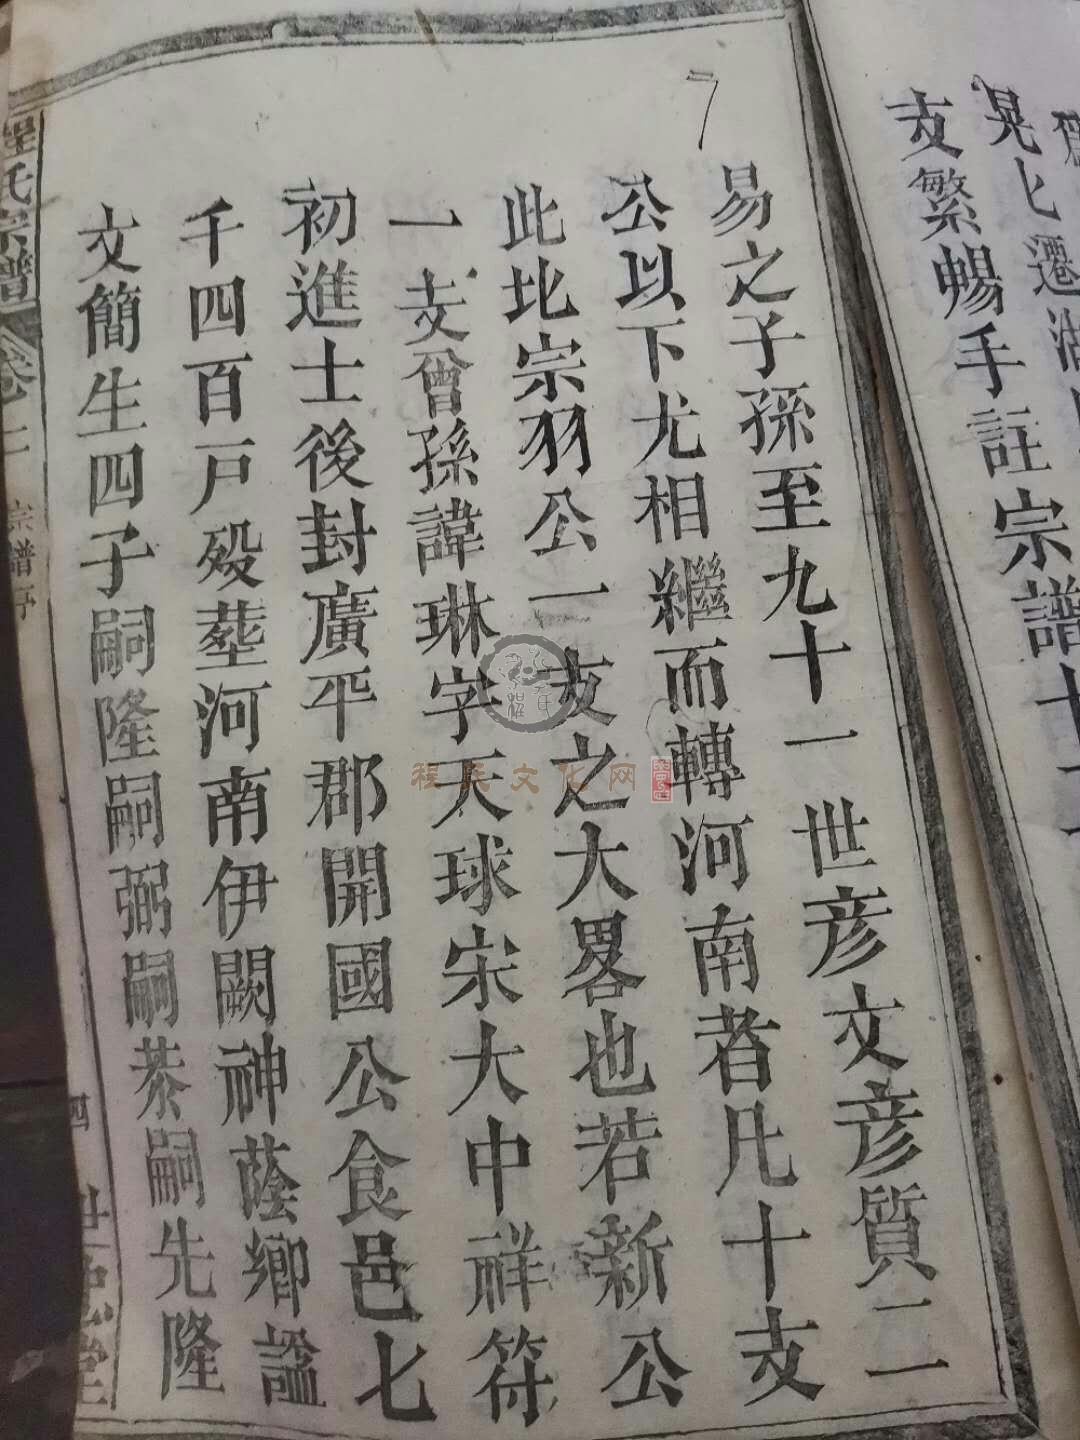 爲
晃七遷湖
支繁暢手註宗譜十二
7
易之子孫至九十一世彥文彥質二
公以下尤相繼而轉河南者凡十支
此比宗羽公一支之大畧也若新公
一支曾孫諱琳字天球宋大中祥符
初進士後封廣平郡開國公食邑七
千四百戸殁塟河南伊闕神蔭鄉諡
文簡生四子嗣隆嗣弼嗣恭嗣先隆
程氏宗譜 卷二 宗譜序 四 世忠堂
程氏文化网